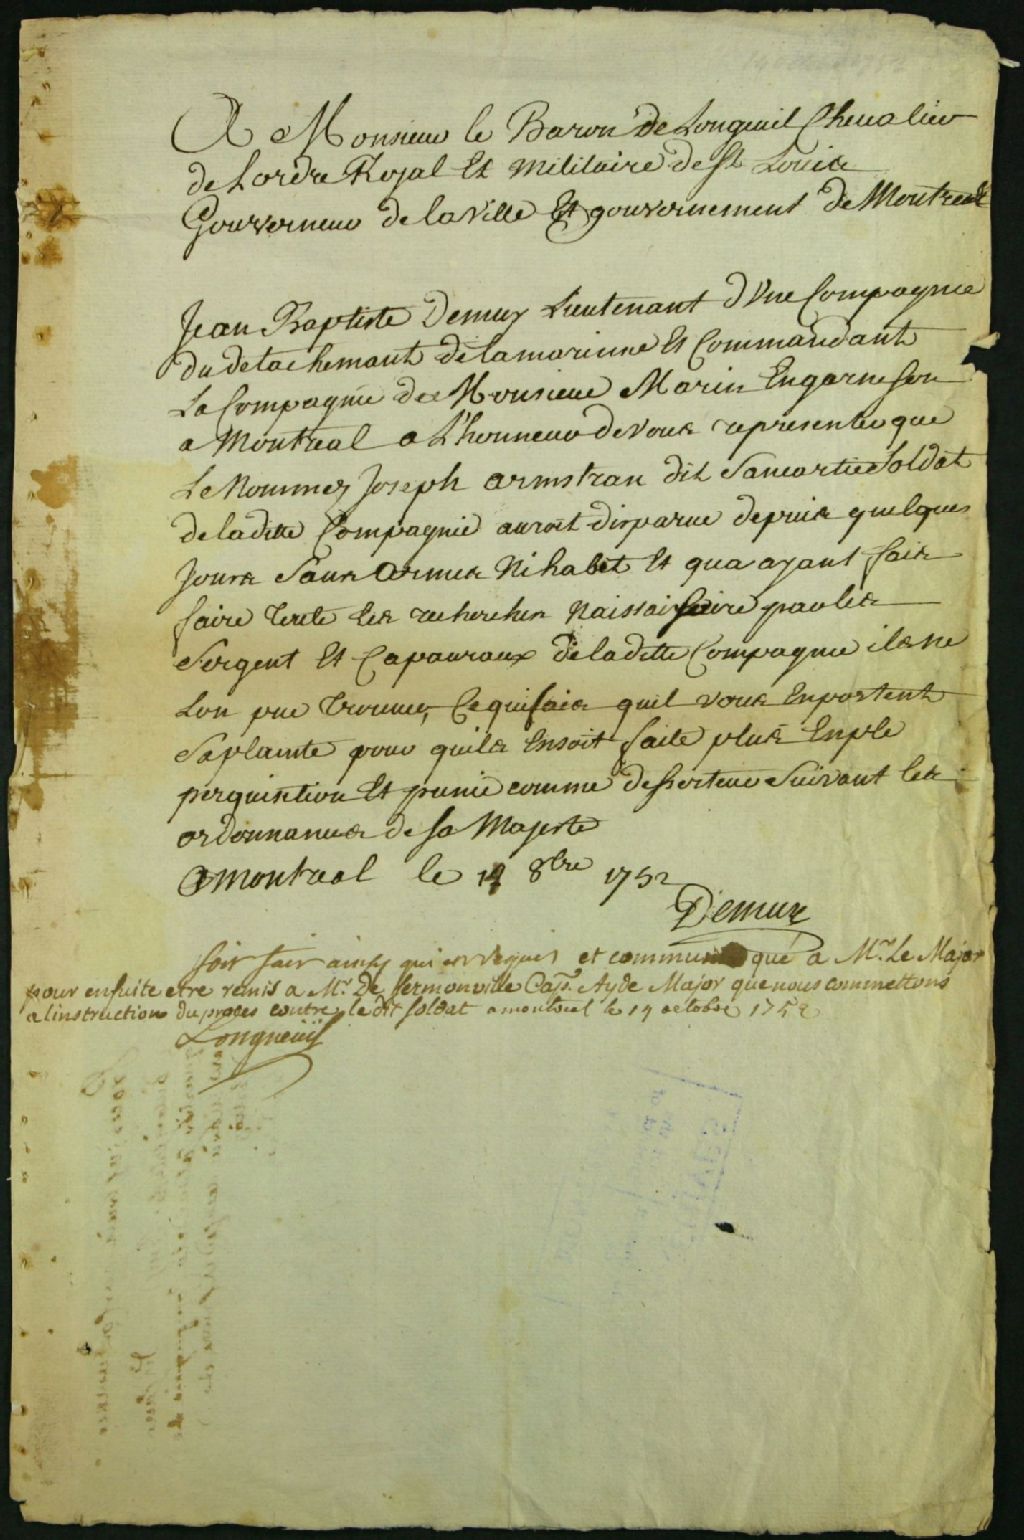 A Monsieur le Baron de Longeuil Chevalier
de Lordre Royal Et Militaire de St Louis
Gouverneur de la Ville Et gouvernement de Montreal
Jean Baptiste Demuy Lieutenant d'Vne Compagnie
du detachemant de la marinne Et Commandant
La Compagnie de Monsieur Marin En garneson
a Montreal a L'honneur de Vous representer que
Le Nommez Joseph armstran dit Sancartier Soldat
de la ditte Compagnie auroit disparue depuis quelques
Jours Sans Armes Ni habet Et qua ayant fais
faire toute les recherches Naissaissaire par les
Sergent Et Capauraux de la ditte Compagnie ils ne
Lon pue trouver, Ce qui fais quil vous En portent
Sa plainte pour quils En soit faite plus Emple
perquisition Et punie comme desserteur Suivant les
ordonnances de Sa Majeste
A Montreal le 14 8bre 1752
Demuy
Soit fait ainsy qui est requis et communiqué a Mr. Le Major
pour ensuite etre remis a Mr. De Sermonville Capt. Ayde Major que nous commettons
a linstruction du proces contre le dit soldat a montreal le 14 octobre 1752
Longueüil